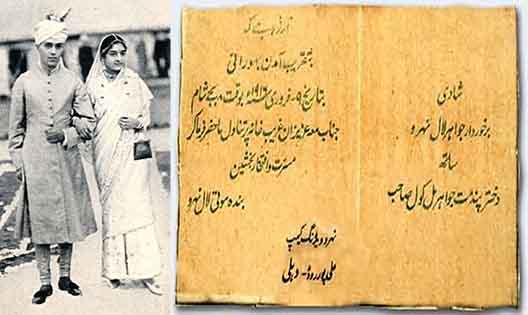 شادی
برخوردار جواہر لال نہرو
ساتھ
دختر پنڈت جواہر مل کول صاحب
آرزو ہے کہ
بتقریب آمدن بہورانی
بتاریخ فروری ۱۹۱۶ء بوقت بجے شام
جناب معہ عزیزان غریب خانہ پر تناول ماحضر فرما کر
مسرت و افتخار بخشیں
بندہ موتی لال نہرو
نہرو ویڈنگ کیمپ
علی پور روڈ - دہلی